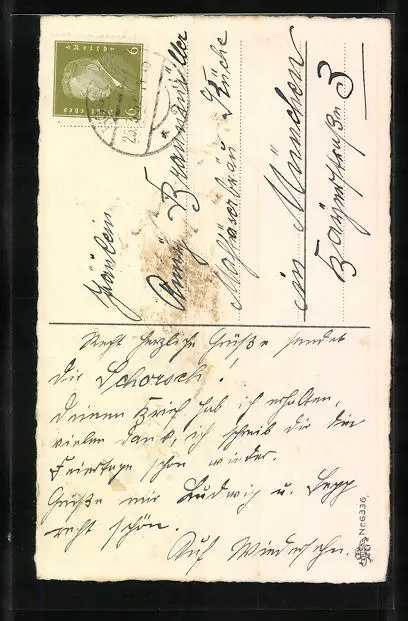 Fräulein
Anny Brandmüller
Mathäserbräu Küche
in München
Bayerstraße 3
Recht herzliche Grüße sendet
dir Schorsch!
Deinen Brief hab ich erhalten,
vielen Dank, ich schreib dir die
Feiertage schon wieder.
Grüße mir Ludwig u. Sepp
recht schön.
Auf Wiedersehn.
Nr. 6336
Deutsches Reich
6 6